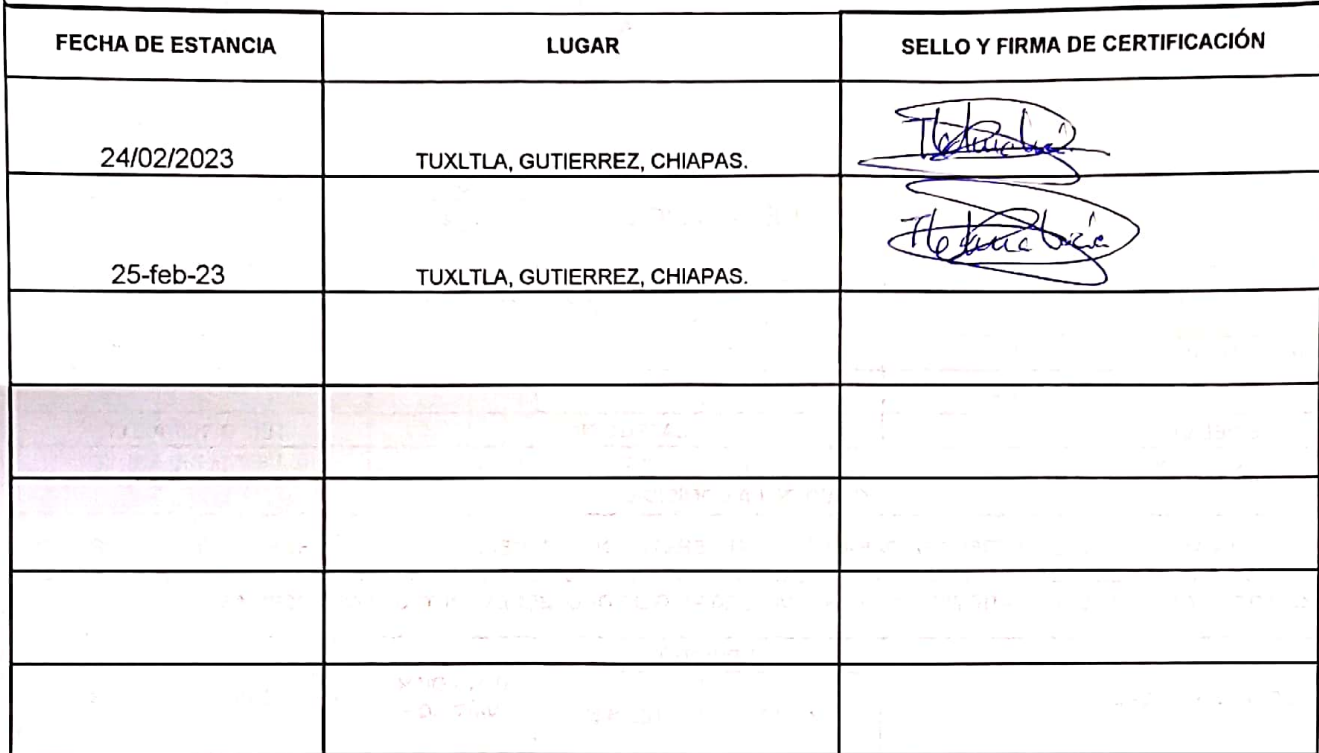 FECHA DE ESTANCIA LUGAR SELLO Y FIRMA DE CERTIFICACIÓN
24/02/2023 TUXLTLA, GUTIERREZ, CHIAPAS.
25-feb-23 TUXLTLA, GUTIERREZ, CHIAPAS.